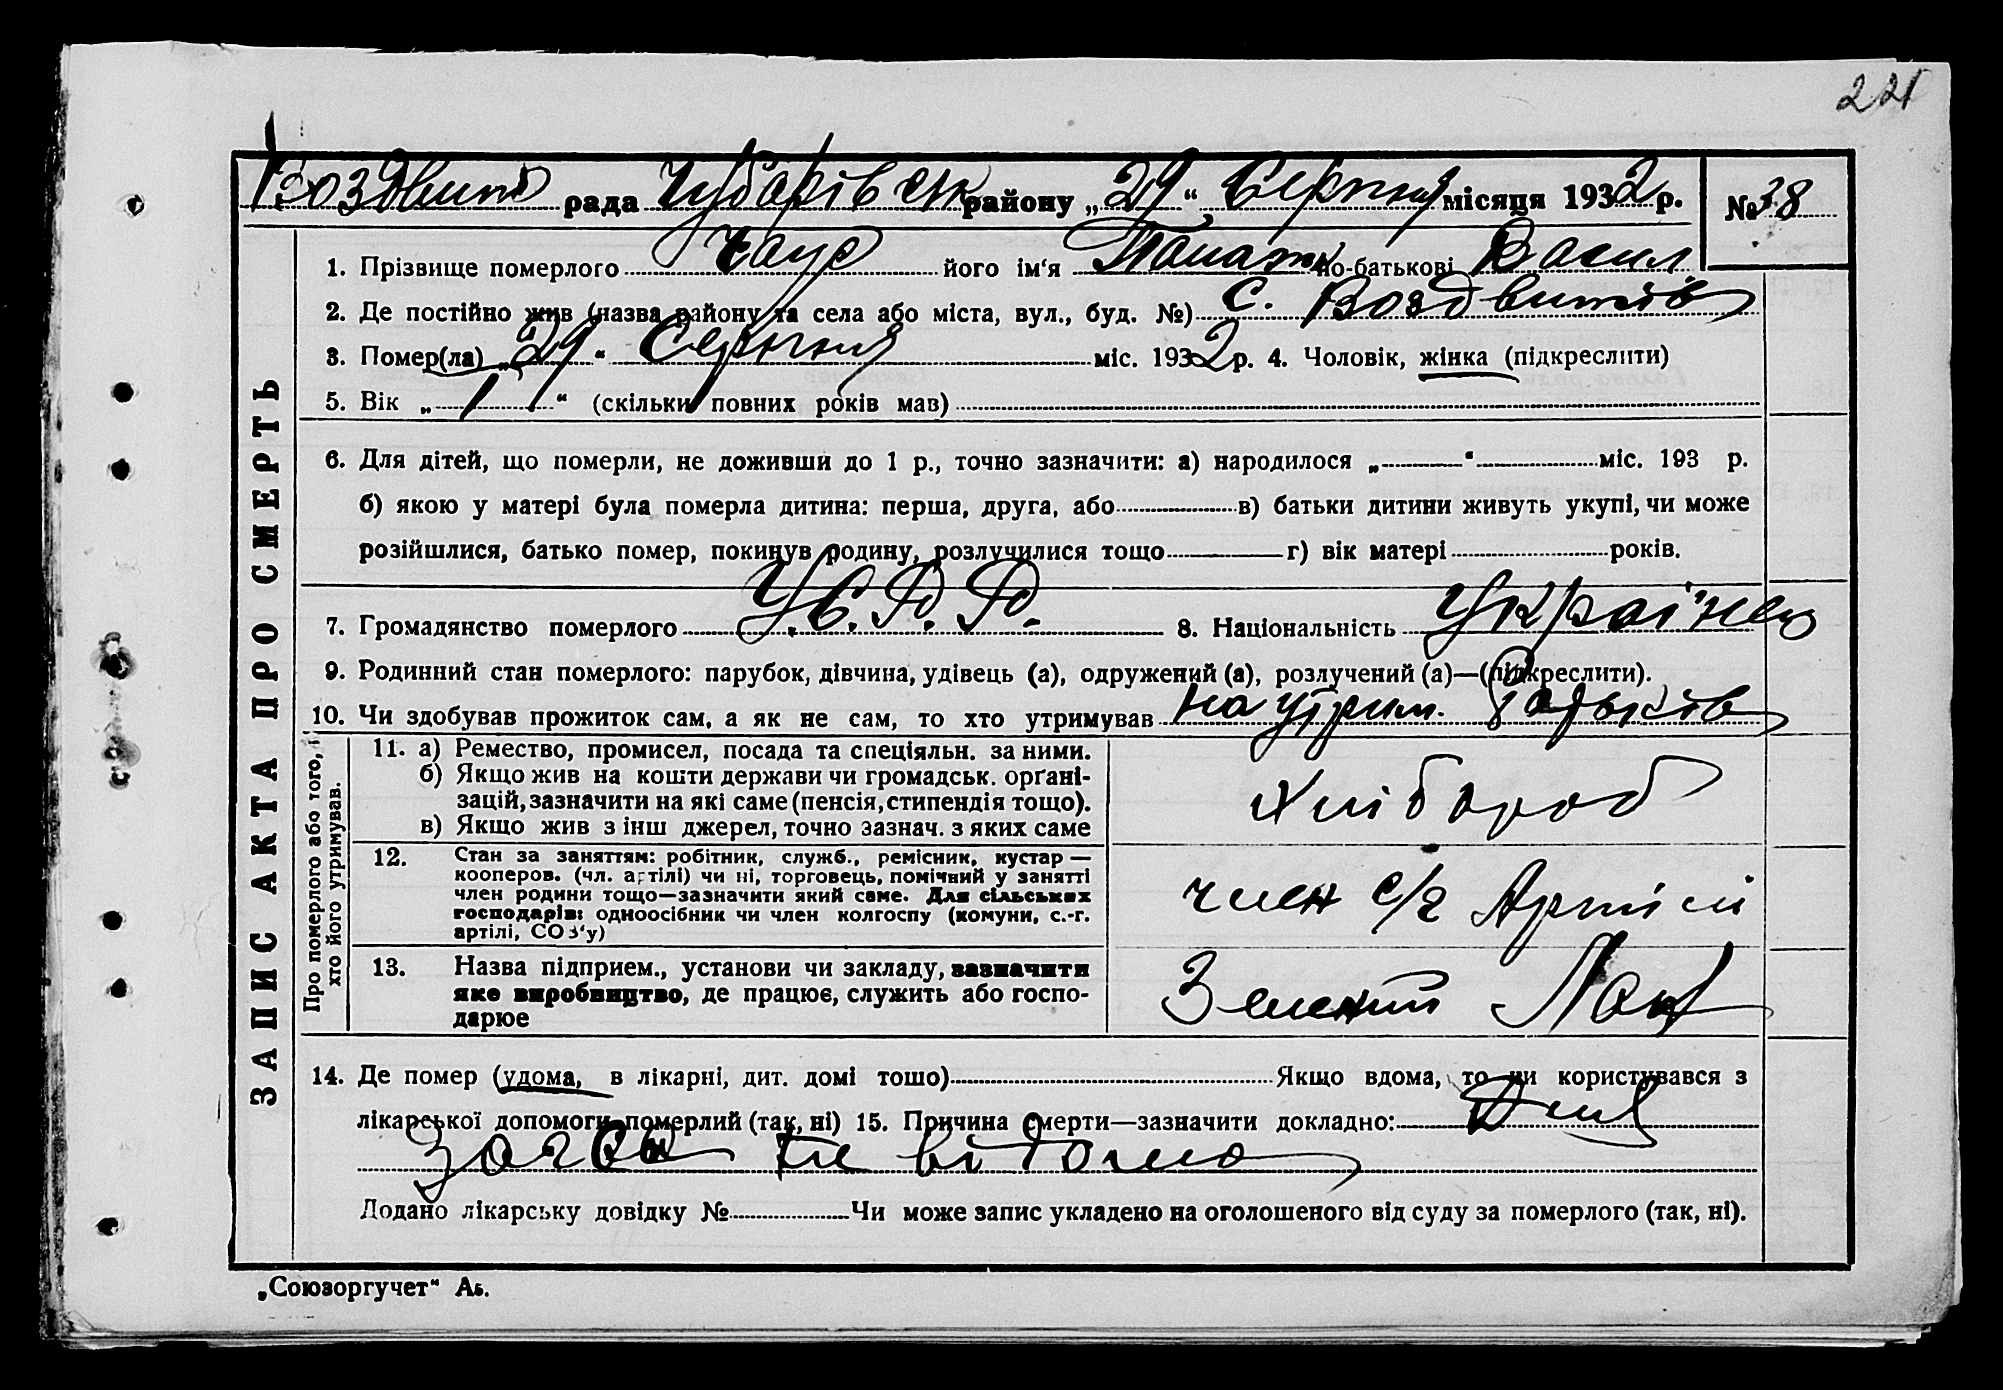 221
Воздвиж рада Чубарівськ району „29“ Серпня місяця 1932 р. № 38
1. Прізвище померлого Чаус його ім‘я Панаж по-батькові Васил.
2. Де постійно жив (назва району та села або міста, вул., буд. №) с. Воздвижів
3. Помер(ла) „29“ Серпня міс. 1932 р. 4. Чоловік, жінка (підкреслити)
5. Вік „1“ (скільки повних років мав)
6. Для дітей, що померли, не доживши до 1 р., точно зазначити: а) народилося „ “ міс. 193 р.
б) якою у матері була померла дитина: перша, друга, або в) батьки дитини живуть укупі, чи може
розійшлися, батько помер, покинув родину, розлучилися тощо г) вік матері років.
7. Громадянство померлого У.С.Р.Р. 8. Національність Українец
9. Родинний стан померлого: парубок, дівчина, удівець (а), одружений (а), розлучений (а)—(підкреслити).
10. Чи здобував прожиток сам, а як не сам, то хто утримував на утрим. батьків
ЗАПИС АКТА ПРО СМЕРТЬ
Про померлого або того,
хто його утримував.
11. а) Ремество, промисел, посада та спеціяльн. за ними.
б) Якщо жив на кошти держави чи громадськ. орґані-
зацій, зазначити на які саме (пенсія, стипендія тощо).
в) Якщо жив з інш джерел, точно зазнач. з яких саме
Хлібороб
12. Стан за заняттям: робітник, служб., ремісник, кустар —
кооперов. (чл. артілі) чи ні, торговець, помічний у занятті
член родини тощо—зазначити який саме. Для сільських
господарів: одноосібник чи член колгоспу (комуни, с.-г.
артілі, СОЗ‘у)
член с/г Артілі
13. Назва підприєм., установи чи закладу, зазначити
яке виробництво, де працює, служить або госпо-
дарює
Зелений Лан
14. Де помер (удома, в лікарні, дит. домі тошо) Якщо вдома, то чи користувався з
лікарської допомоги померлий (так, ні) 15. Причина смерти—зазначити докладно:
не відомо
Додано лікарську довідку № Чи може запис укладено на оголошеного від суду за померлого (так, ні).
„Союзоргучет“ Аь.